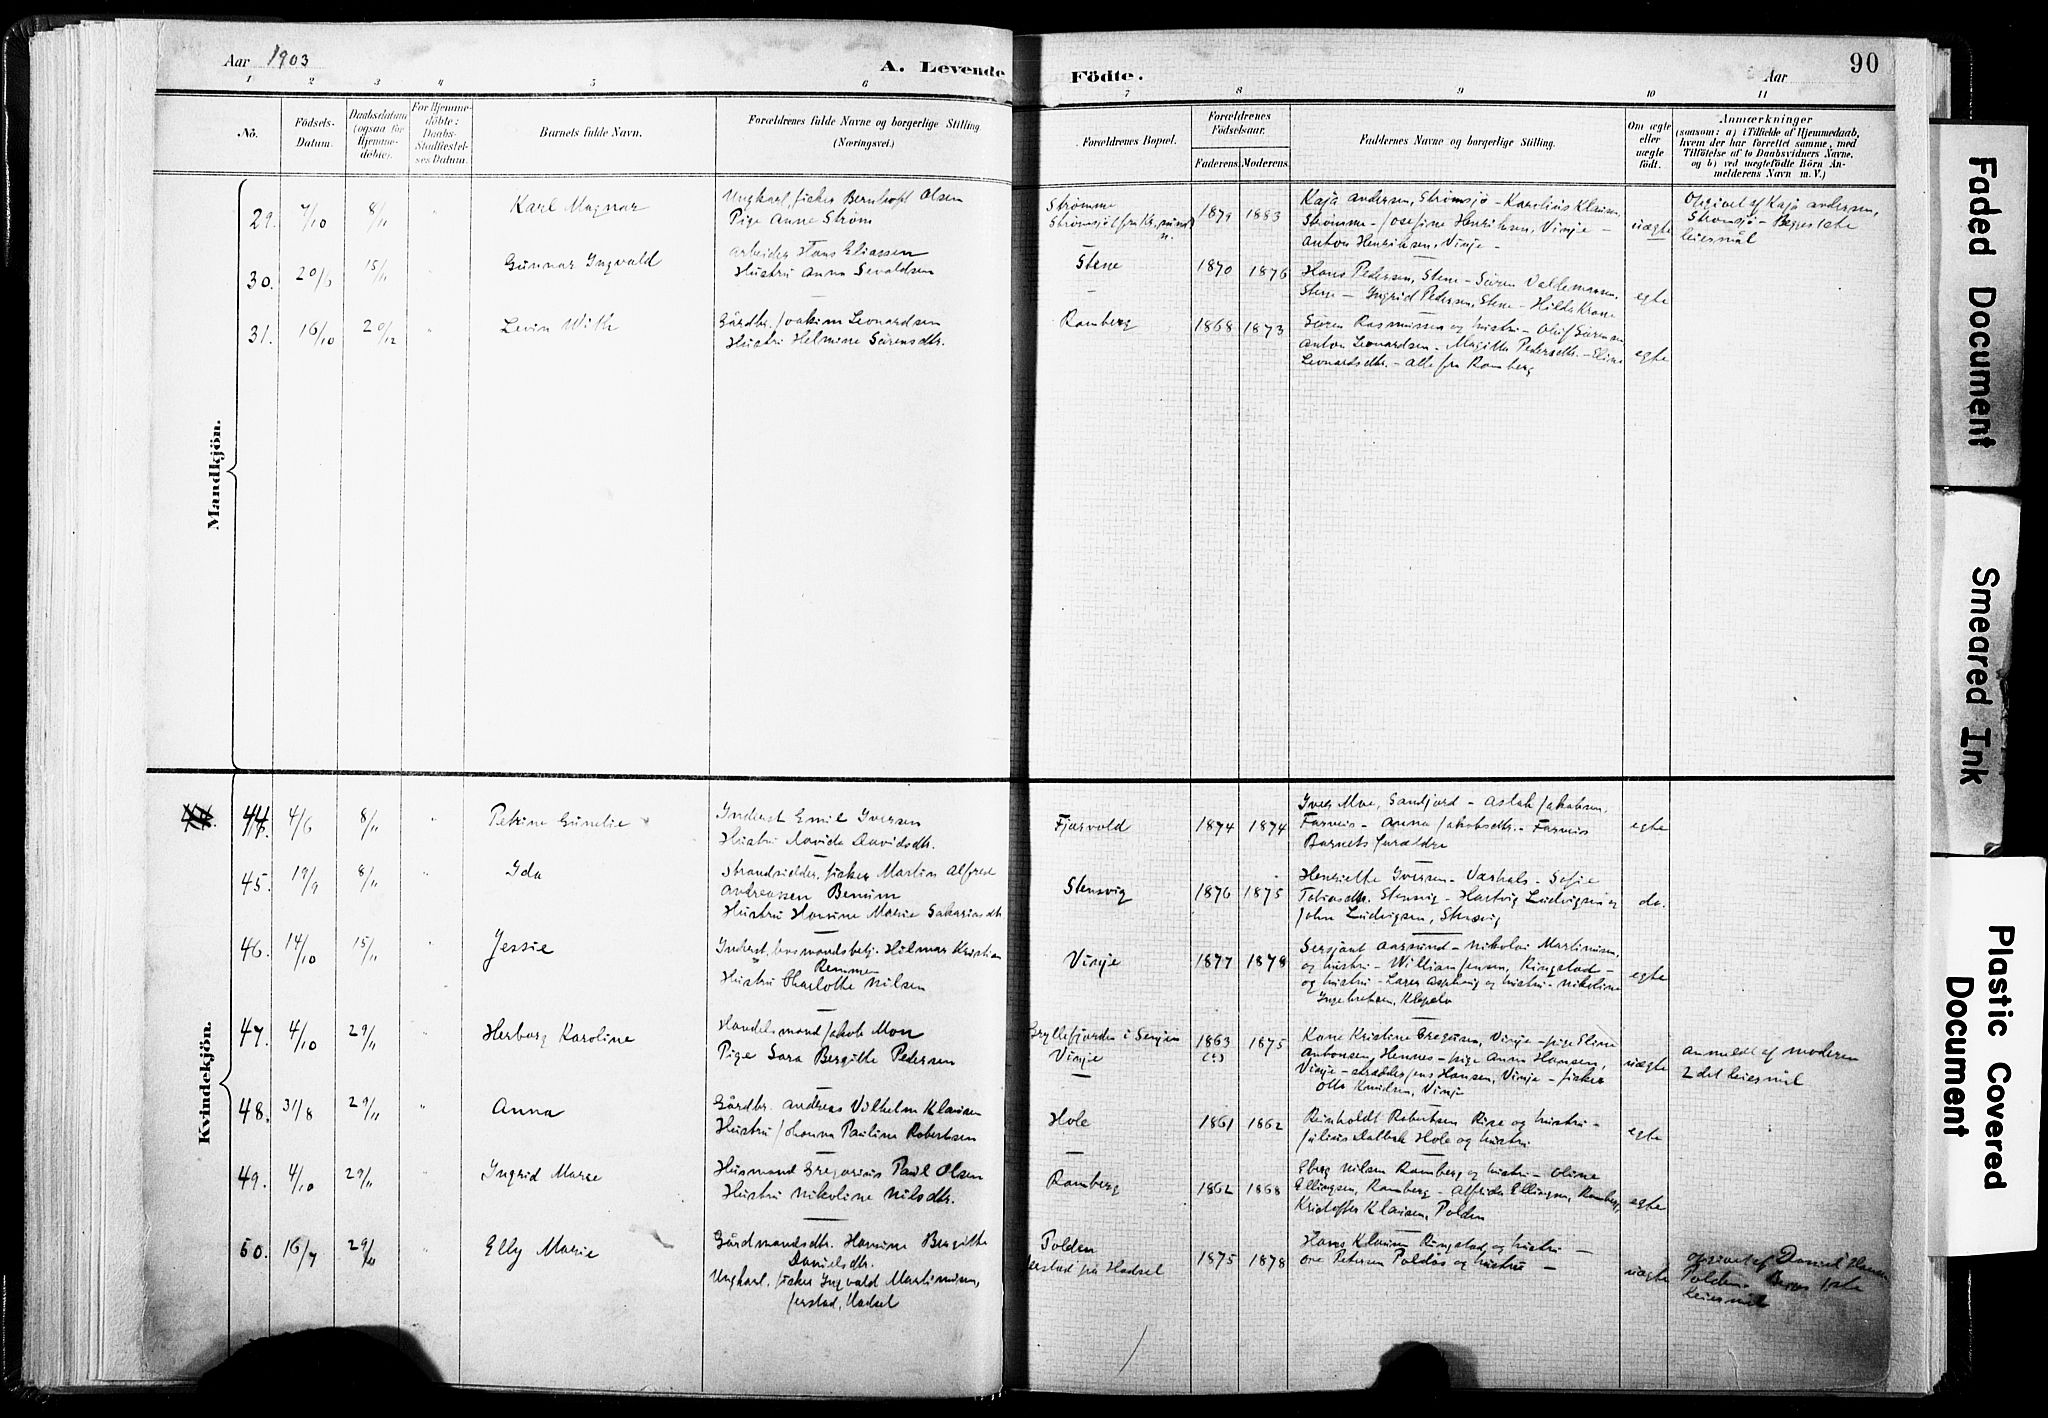 Aar 1903
A. Levende Födte.
Aar
90
1 2 3 4 5 6 7 8 9 10 11
No.
Födsels-Datum.
Daabsdatum (ogsaa for Hjemmedöbte).
For Hjemmedöbte: Daabs-Stadfæstelses Datum.
Barnets fulde Navn.
Forældrenes fulde Navne og borgerlige Stilling
(Næringsvei.)
Forældrenes Bopæl.
Forældrenes Födselsaar.
Faderens Moderens
Faddernes Navne og borgerlige Stilling.
Om ægte eller uægte födt.
Anmærkninger
(saasom: a) i Tilfælde af Hjemmedaab,
hvem der har forrettet samme, med
Tilföielse af to Daabsvidners Navne,
og b) ved uægtefödte Börn Anmelderens Navn m. V.)
Mandkjön.
29. 7/10 8/11 " Karl Magnar
Ungkarl, fisker Bernhoft Olsen
Pige Anne Strøm
Strømme
Strømsjö
1879 1883
Kaja Andersen, Strømsjö - Karolius Klausen,
Strømme - Josefine Henriksen, Vinje -
Anton Henriksen, Vinje -
uægte
Opgivet af Kaja Andersen,
Strømsjö - Begges 1ste
leiermål
30. 15/11 " Gunnar Ingvald
Arbeider Hans Eliassen
Hustru Anna Sevaldsen
Stene
1870 1876
Hans Pedersen, Stene - Sören Valdemarsen,
Stene - Ingrid Pedersen, Stene - Hilda Krane
egte
31. 16/10 20/12 " Levin With
Gårdbr. Joakim Leonardsen
Hustru Helmine Sörensdtr.
Ramberg
1868 1873
Sören Rasmussen og hustru - Oluf Sörensen
Anton Leonardsen - Magitta Pedersdtr. - Eline
Leonardsdtr. - Alle fra Ramberg
egte
Kvindekjön.
44. 4/6 8/11 " Petrine Gunelie
Inderst Emil Iversen
Hustru Davida Davidsdtr.
Fjærvold
1874 1874
Iver Moe, Sandfjord - Aslak Jakobsen
Farneis - Anna Jakobsdtr. - Farneis
Barnets forældre
egte
45. 19/9 8/11 " Ida
Strandsidder, fisker Martin Alfred
Andreassen Benum
Hustru Hansine Marie Sakariasdtr
Stensvig
1876 1875
Henriette Iversen - Værhals - Sofie
Tobiasdtr. Stensvig - Hartvig Ludvigsen og
John Ludvigsen, Stensvig
do.
46. 14/10 15/11 " Jessie
Inderst, Hilmar Kristian
Remmen
Hustru Charlotte Nilsen
Vinje
1877 1879
Sersjant Aarsund - Nikolai Martinusen,
og hustru - William Jensen, Ringstad -
og hustru - Lars Asphaug og hustru - Nikoline
Ingebretsen, Klepelv
egte
47. 4/10 29/11 " Herborg Karoline
Handelsmand Jakob Moe
Pige Sara Bergitte Pedersen
Gryllefjorden i Senjen
Vinje
1863 1875
Kone Kristine Gregusen, Vinje - pige Eline
Antonsen, Hennes - pige Anna Hansen,
Vinje - skrædder Jens Hansen, Vinje - fisker
Otto Knudsen, Vinje
uægte
Anmeldt af moderen
2det leiermål
48. 31/8 29/11 " Anna
Gårdbr. Andreas Vilhelm Klausen
Hustru Johanna Pauline Robertsen
Hole
1861 1862
Reinholdt Robertsen Rise og hustru -
Julius Dalbak Hole og hustru
egte
49. 4/10 29/11 Ingrid Marie
Husmand Gregorius Paul Olsen
Hustru Nikoline Nilsdtr.
Ramberg
1862 1868
Eberg Nilsen Ramberg og hustru - Oline
Ellingsen, Ramberg - Alfrida Ellingsen, Ramberg,
Kristoffer Klausen, Polden
egte
50. 16/7 29/11 " Elly Marie
Gårdmandsdtr. Hansine Bergitte
Danielsdtr.
Ungkarl, fisker Ingvald Martinusen,
Jerstad, Hadsel
Polden
Jerstad på Hadsel
1875 1878
Hans Klausen Ringstad og hustru -
Ove Petersen Poldås og hustru -
uægte
Opgivet af Daniel Hansen
Polden - Begges 1ste
leiermål
Faded Document
Smeared Ink
Plastic Covered
Document